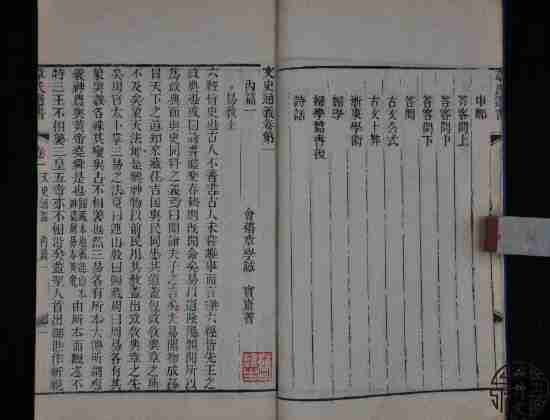 申鄭
答客問上
答客問中
答客問下
答問
古文公式
古文十弊
浙東學術
婦學
婦學篇書後
詩話
文史通義卷第一
會稽章學誠 實齋著
內篇一
易教上
六經皆史也古人不著書古人未嘗離事而言理六經皆先王之
政典也或曰詩書禮樂春秋則既聞命矣易以道陰陽願聞所以
為政典而與史同科之義焉曰聞諸夫子之言矣夫易開物成務
冒天下之道知來藏往吉凶與民同患其道蓋包政教典章之所
不及矣象天法地是興神物以前民用其教蓋出政教典章之先
矣周官太卜掌三易之法夏曰連山殷曰歸藏周曰周易各有其
象與數各殊其變與占不相襲也然三易各有所本大傳所謂庖
羲神農與黃帝堯舜是也由所本而觀之不
特三王不相襲三皇五帝亦不相沿矣蓋聖人首出御世作新視
章氏遺書 卷一 文史通義 內篇一